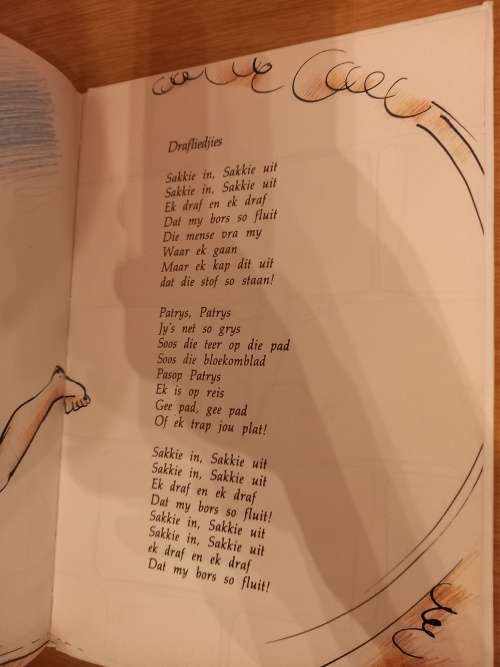 Drafliedjies
Sakkie in, Sakkie uit
Sakkie in, Sakkie uit
Ek draf en ek draf
Dat my bors so fluit
Die mense vra my
Waar ek gaan
Maar ek kap dit uit
dat die stof so staan!
Patrys, Patrys
Jy's net so grys
Soos die teer op die pad
Soos die bloekomblad
Pasop Patrys
Ek is op reis
Gee pad, gee pad
Of ek trap jou plat!
Sakkie in, Sakkie uit
Sakkie in, Sakkie uit
Ek draf en ek draf
Dat my bors so fluit!
Sakkie in, Sakkie uit
Sakkie in, Sakkie uit
ek draf en ek draf
Dat my bors so fluit!